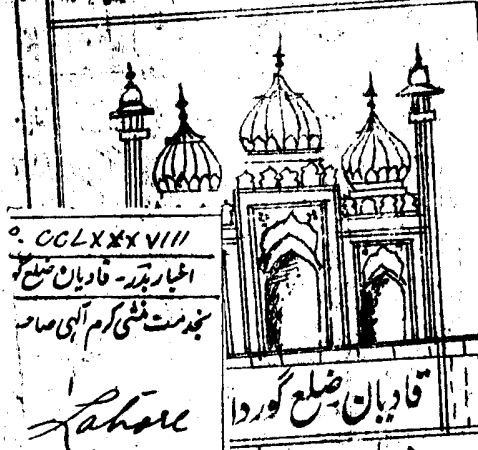 o. CCLXXXVIII
اخبار بدر - قادیان ضلع گو
بخدمت منشی کرم الٰہی صاحب
Lahore
قادیان ضلع گوردا